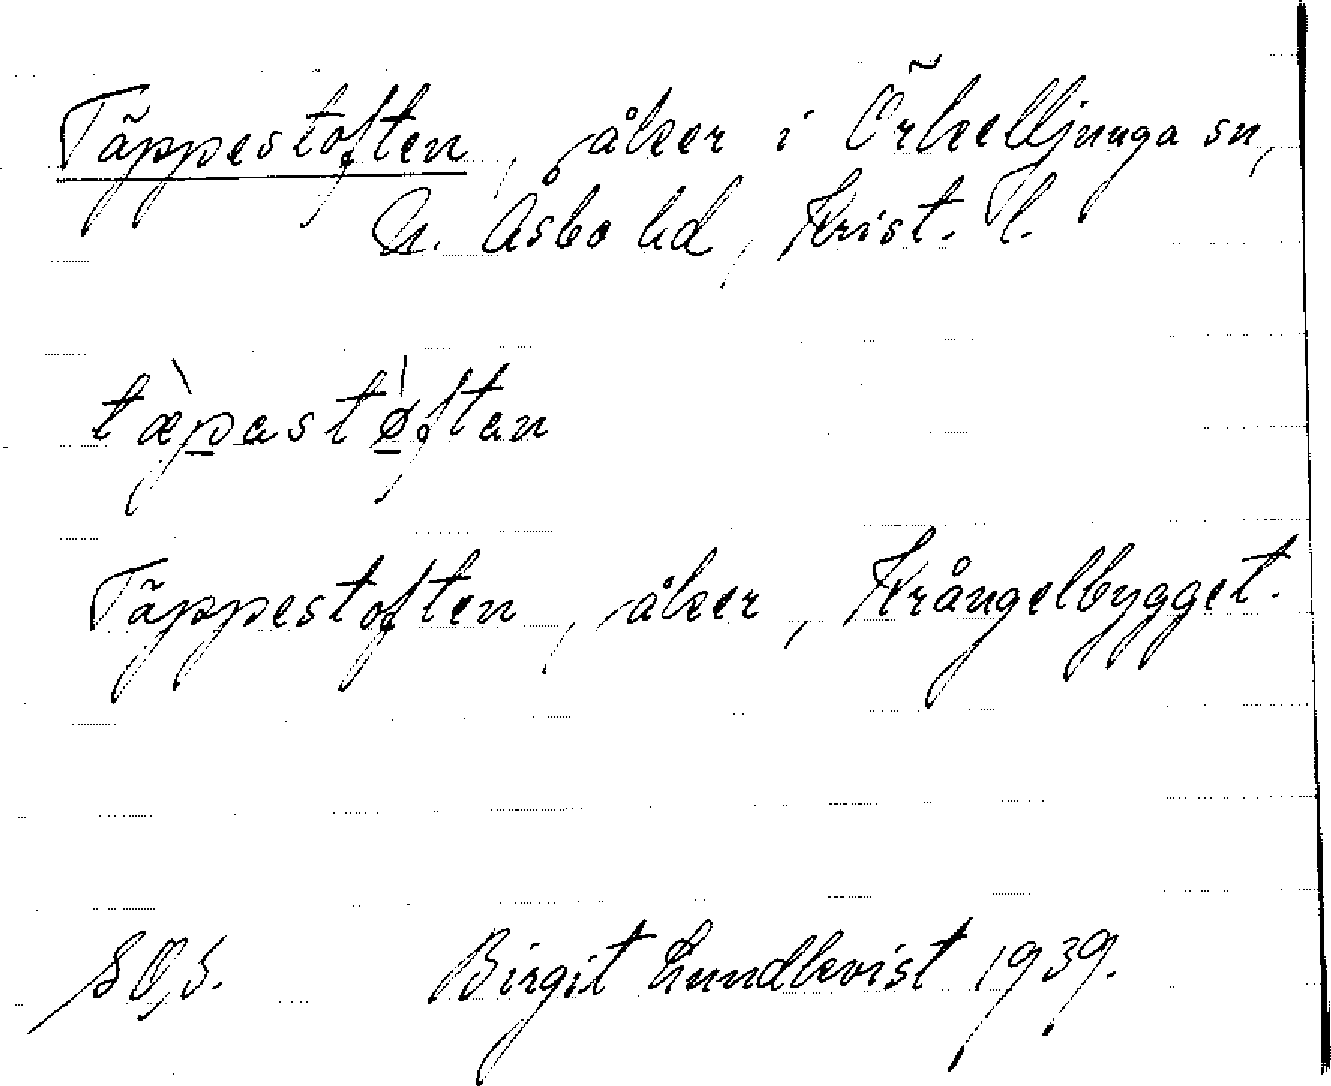 Täppestoften, åker i Örkelljunga sn,
N. Åsbo hd, Krist. l.
tæ̀pastø̀ftan
Täppestoften, åker, Krångelbygget.
Birgit Lundkvist 1939.